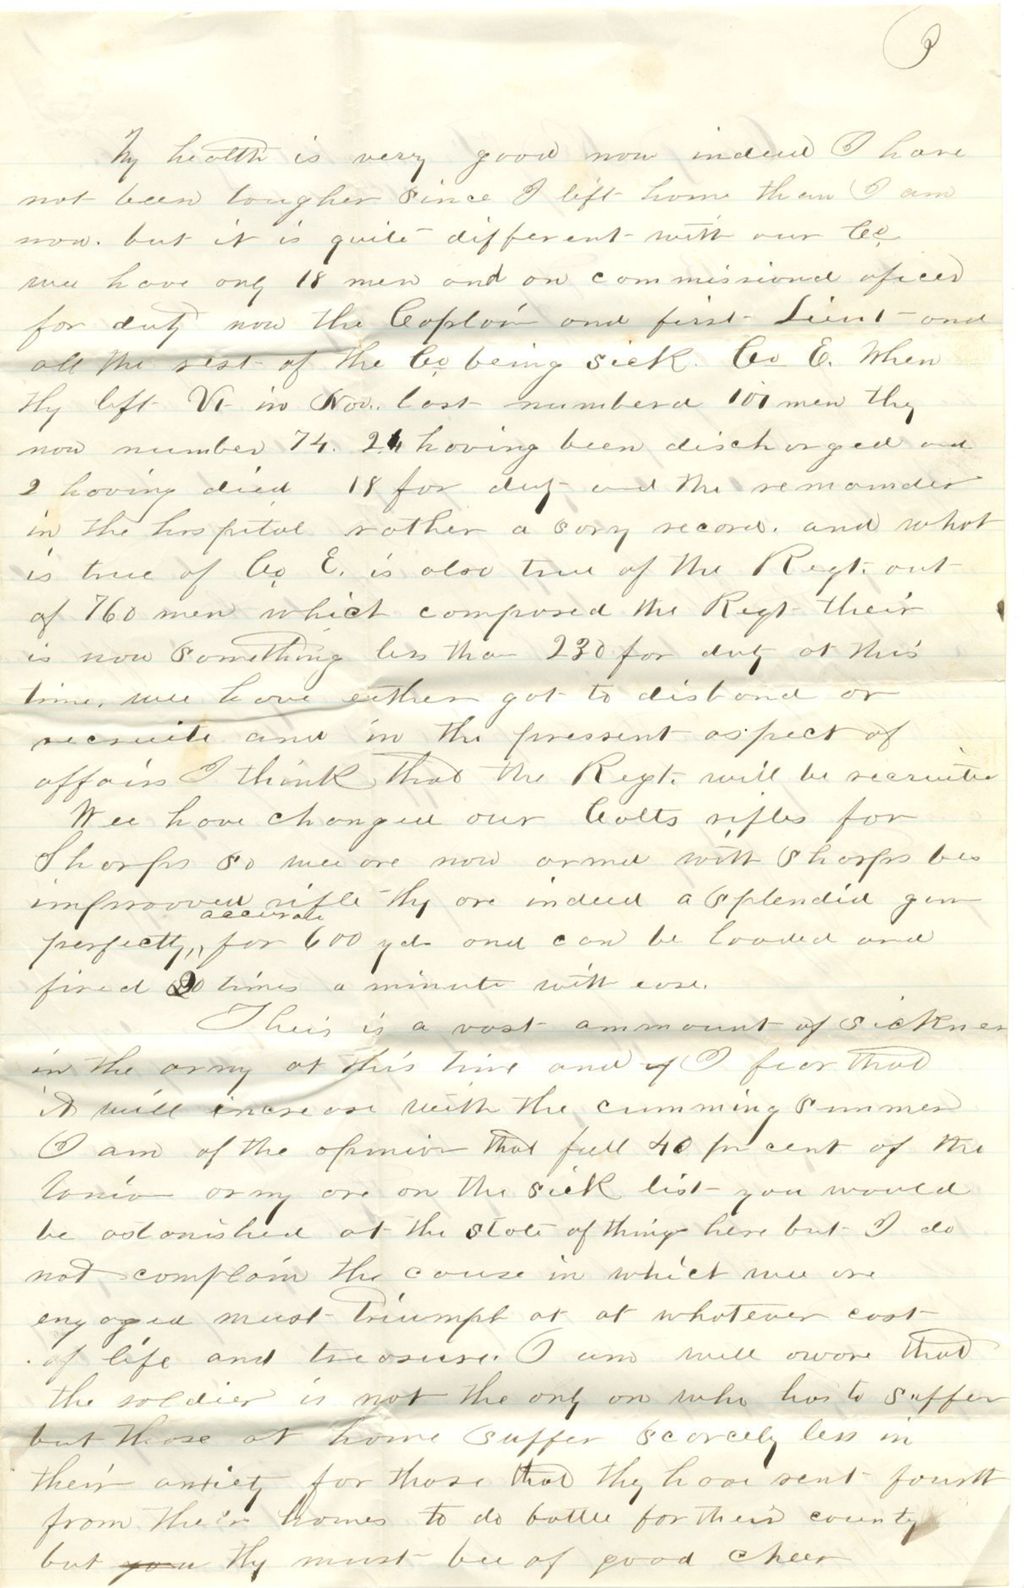 3
My health is very good now indeed I have
not been tougher since I left home than I am
now. but it is quite different with our Co
wee have ony 18 men and on commissiond oficer
for duty now the Captain and first Lieut and
all the rest of the Co being sick. Co E. When
thy left Vt in Nov. last numberd 101 men thy
now number 74. 24 having been discharged and
2 having died 18 for duty and the remainder
in the hospital rather a sory record. and what
is true of Co E. is also true of the Regt. out
of 760 men which composed the Regt their
is now something less than 230 for duty at this
time. wee have either got to disband or
recruite and in the pressent aspect of
affairs I think that the Regt. will be recruited
Wee have changed our Colts rifles for
Sharps so wee are now armed with Sharps
improoved rifle thy are indeed a splendid gun
accurate
perfectly for 600 yds and can be loaded and
fired 20 times a minute with ease.
Their is a vast ammount of sickness
in the army at this time and I fear that
it will increase with the cumming summer
I am of the opinion that full 40 pr cent of the
army are on the sick list you would
be astonished at the state of things here but I do
not complain the cause in which wee are
engaged must triumph at at whatever cost
of life and treasure. I am well aware that
the soldier is not the ony on who has to suffer
but those at home suffer scarcely less in
their anxiety for those that thy have sent fourth
from their homes to do battle for their county
but you thy must bee of good cheer